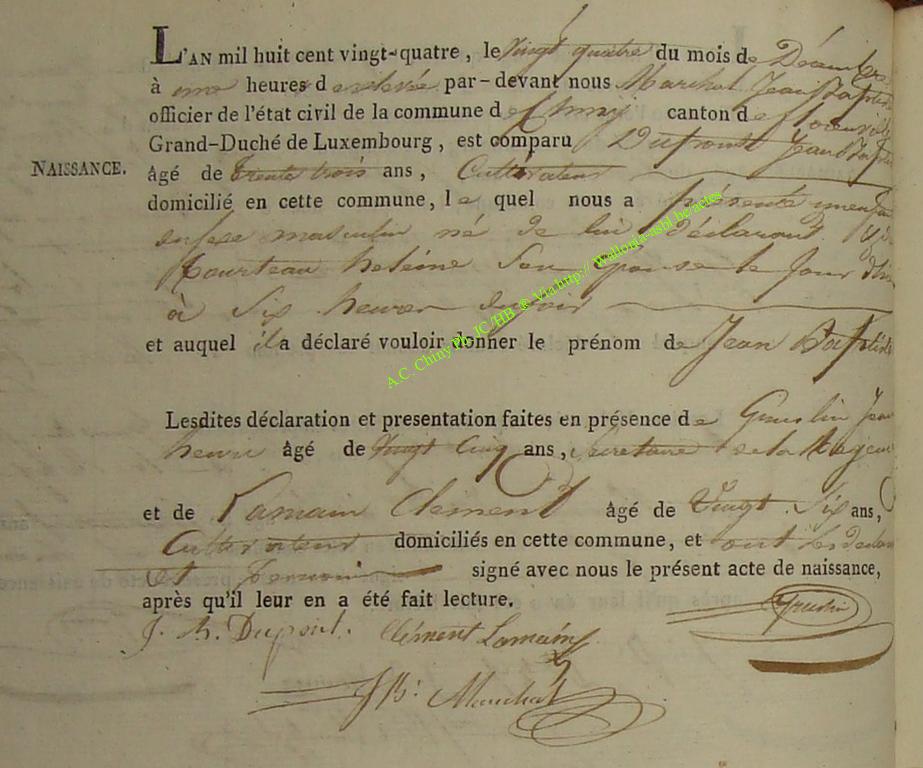 L'AN mil huit cent vingt-quatre, le vingt quatre du mois de Décembre
à une heures de relevée par-devant nous Marchal Jean Baptiste
officier de l'état civil de la commune de Chiny canton de florenville
Grand-Duché de Luxembourg, est comparu Dupont Jean Bapte
NAISSANCE.
âgé de trente trois ans, Cultivateur
domicilié en cette commune, le quel nous a présenté un enfant
du sexe masculin né de lui déclarant & de
heléine Son épouse le jour d'hier
à Six heures du soir
et auquel il a déclaré vouloir donner le prénom de Jean Baptiste
Lesdites déclaration et presentation faites en présence de Jean
henri âgé de vingt Cinq ans, Secretaire de la
et de Lamain Clement âgé de vingt Six ans,
Cultivateur domiciliés en cette commune, et ont les
et temoins signé avec nous le présent acte de naissance,
après qu'il leur en a été fait lecture.
J. B. Dupont. Clément Lamain
J B: Marchal
A.C. Chiny Ph. JC/HB ® Via http:// Wallonia-asbl.be/actes